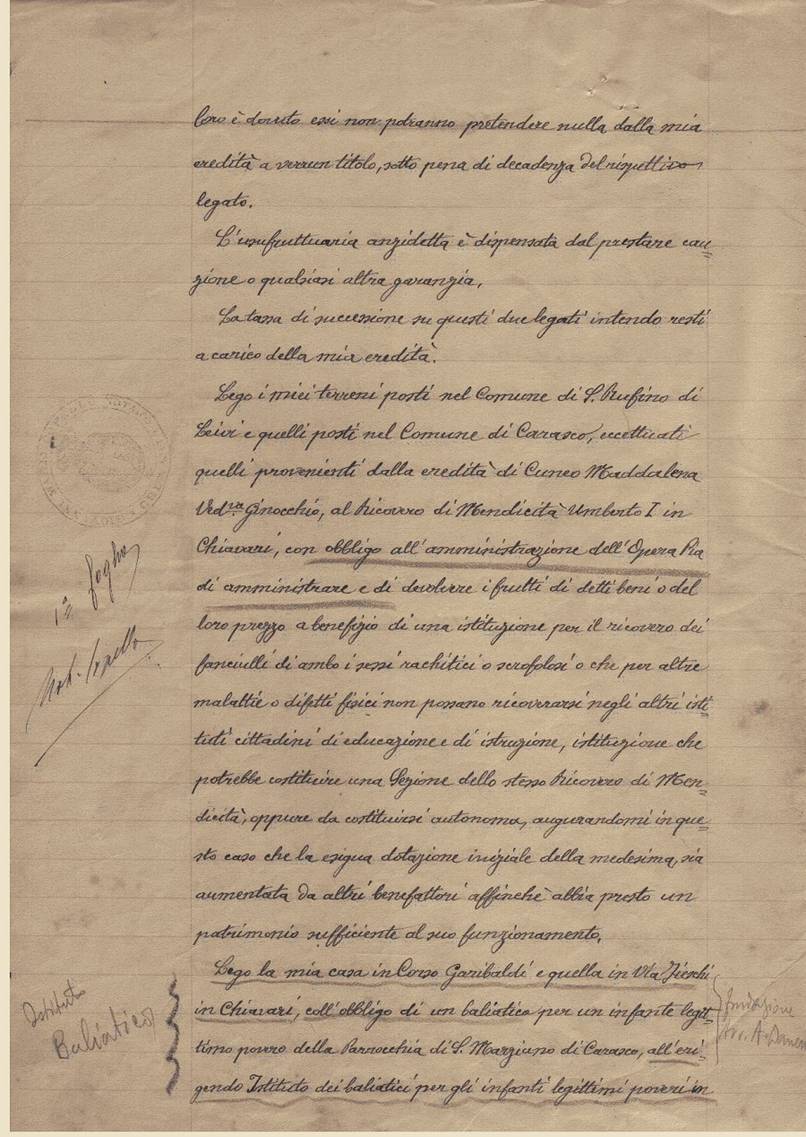 loro è dovuto essi non potranno pretendere nulla dalla mia
eredità a verrun titolo, sotto pena di decadenza del rispettivo
legato.
L'usufruttuaria anzidetta è dispensata dal prestare cau=
zione o qualsiasi altra garanzia.
La tassa di successione su questi due legati intendo resti
a carico della mia eredità.
Lego i miei terreni posti nel Comune di S. Rufino di
Leivi e quelli posti nel Comune di Carasco, eccettuati
quelli provenienti dalla eredità di Cuneo Maddalena
Ved.va Ginocchio, al Ricovero di Mendicità Umberto I in
Chiavari, con obbligo all'amministrazione dell'Opera Pia
di amministrare e di devolvere i frutti di detti beni o del
loro prezzo a benefizio di una istituzione per il ricovero dei
fanciulli di ambo i sessi rachitici o scrofolosi o che per altre
malattie o difetti fisici non possano ricoverarsi negli altri isti=
tuti cittadini di educazione e di istruzione, istituzione che
potrebbe costituire una Sezione dello stesso Ricovero di Men=
dicità, oppure da costituirsi autonoma, augurandomi in que=
sto caso che la esigua dotazione iniziale della medesima, sia
aumentata da altri benefattori affinchè abbia presto un
patrimonio sufficiente al suo funzionamento.
Lego la mia casa in Corso Garibaldi e quella in Via Fieschi
in Chiavari, coll'obbligo di un baliatico per un infante legit=
timo povero della Parrocchia di S. Marziano di Carasco, all'eri=
gendo Istituto dei baliatici per gli infanti legittimi poveri in
1º foglio
Not.
Istituto
Baliatico
fondazione